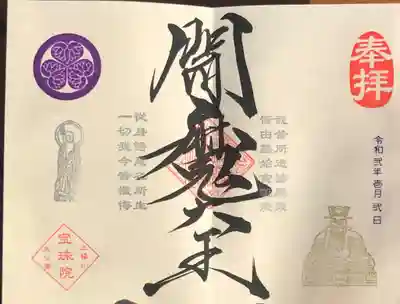 奉拝
令和弐年壱月弐日
我昔所造諸悪業
皆由無始貪瞋痴
閻魔大王
従身語意之所生
一切我今皆懺悔
三縁山
宝珠院
芝公園